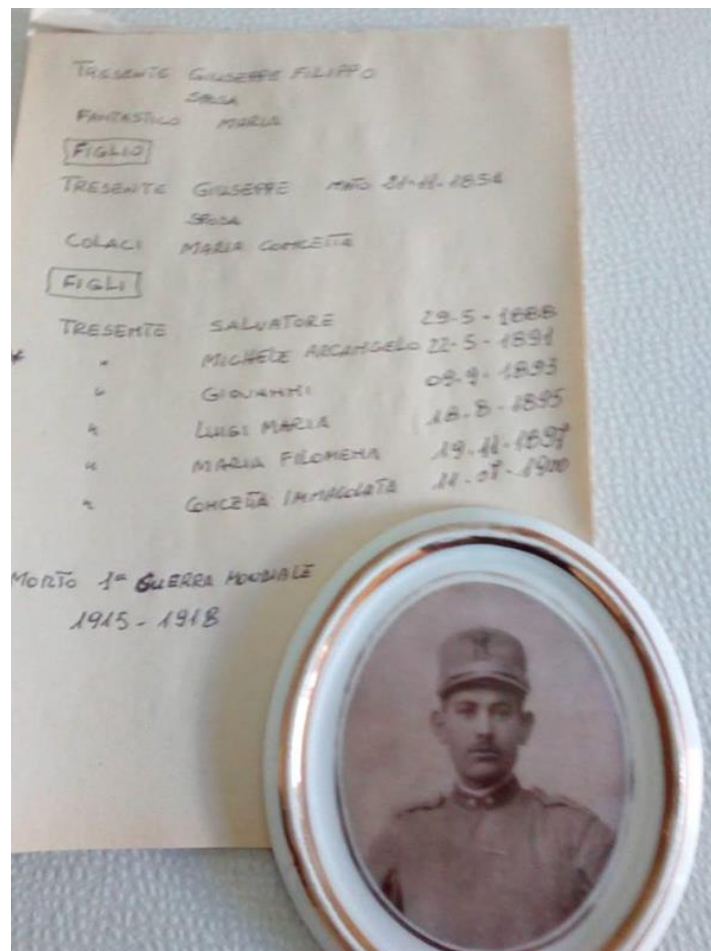 TRESENTE GIUSEPPE FILIPPO
SPOSA
FANTASTICO MARIA
FIGLIO
TRESENTE GIUSEPPE NATO 21-11-1854
SPOSA
COLACI MARIA CONCETTA
FIGLI
TRESENTE SALVATORE 29-5-1888
* " MICHELE ARCANGELO 22-5-1891
" GIOVANNI 09-9-1893
" LUIGI MARIA 18-8-1895
" MARIA FILOMENA 19-11-1897
" CONCETTA IMMACOLATA 11-07-1900
MORTO 1ª GUERRA MONDIALE
1915-1918